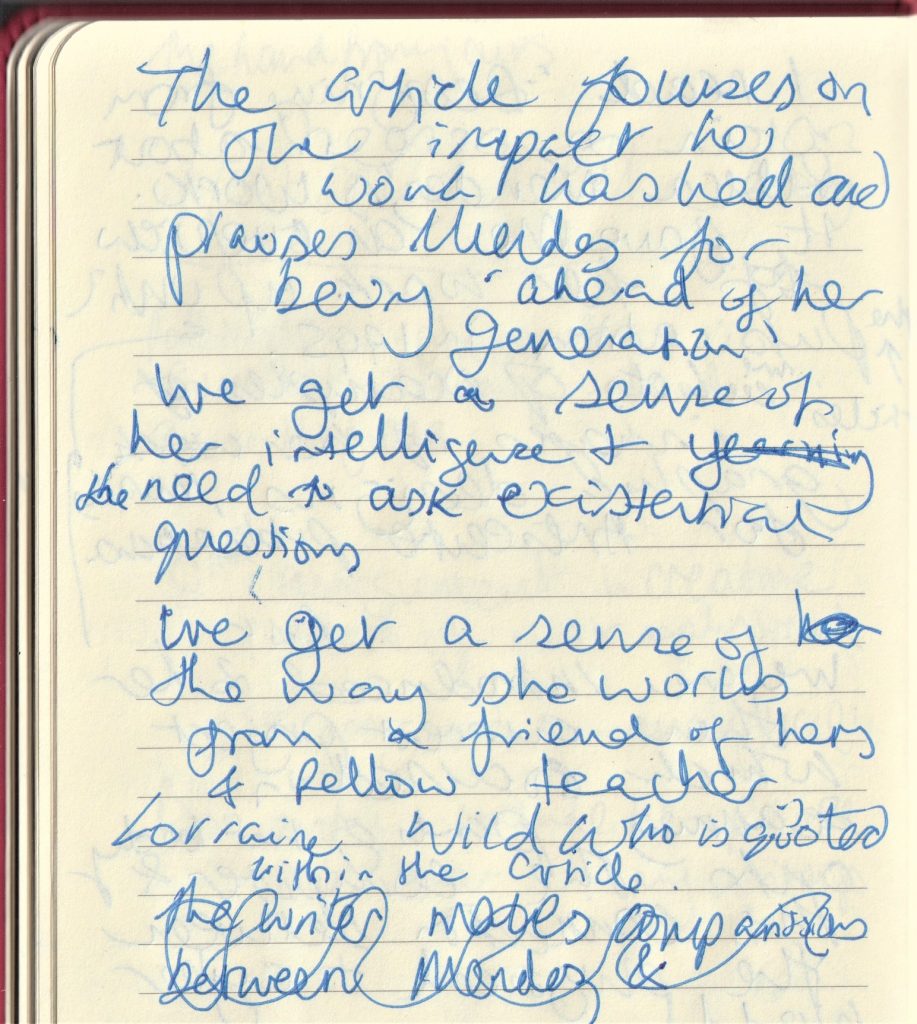 The article focuses on
the impact her
work has had and
praises Mendez for
being 'ahead of her
generation'
We get a sense of
her intelligence & yearning
the need to ask existential
questions
We get a sense of her
the way she works
from a friend of hers
& fellow teacher
Lorraine Wild who is quoted
within the article.
the writer makes comparisons
between Mendez &